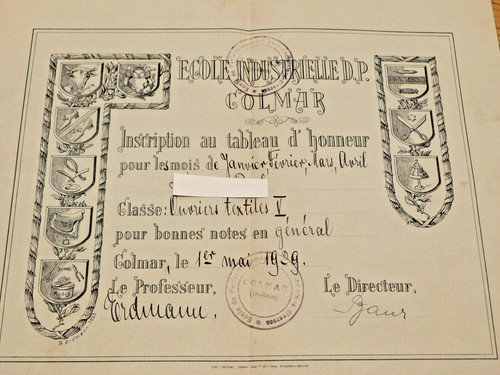 ECOLE INDUSTRIELLE D.P.
COLMAR
Inscription au tableau d'honneur
pour les mois de Janvier, Février, Mars, Avril
Classe: Ouvriers textiles V
pour bonnes notes en général
Colmar, le 1er mai 1929.
Le Professeur, Le Directeur,
Erdmann.
COLMAR
(Ht-Rhin)